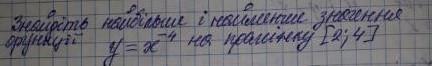 Знайдіть найбільше і найменше значення
функції y = x⁻⁴ на проміжку [2; 4]